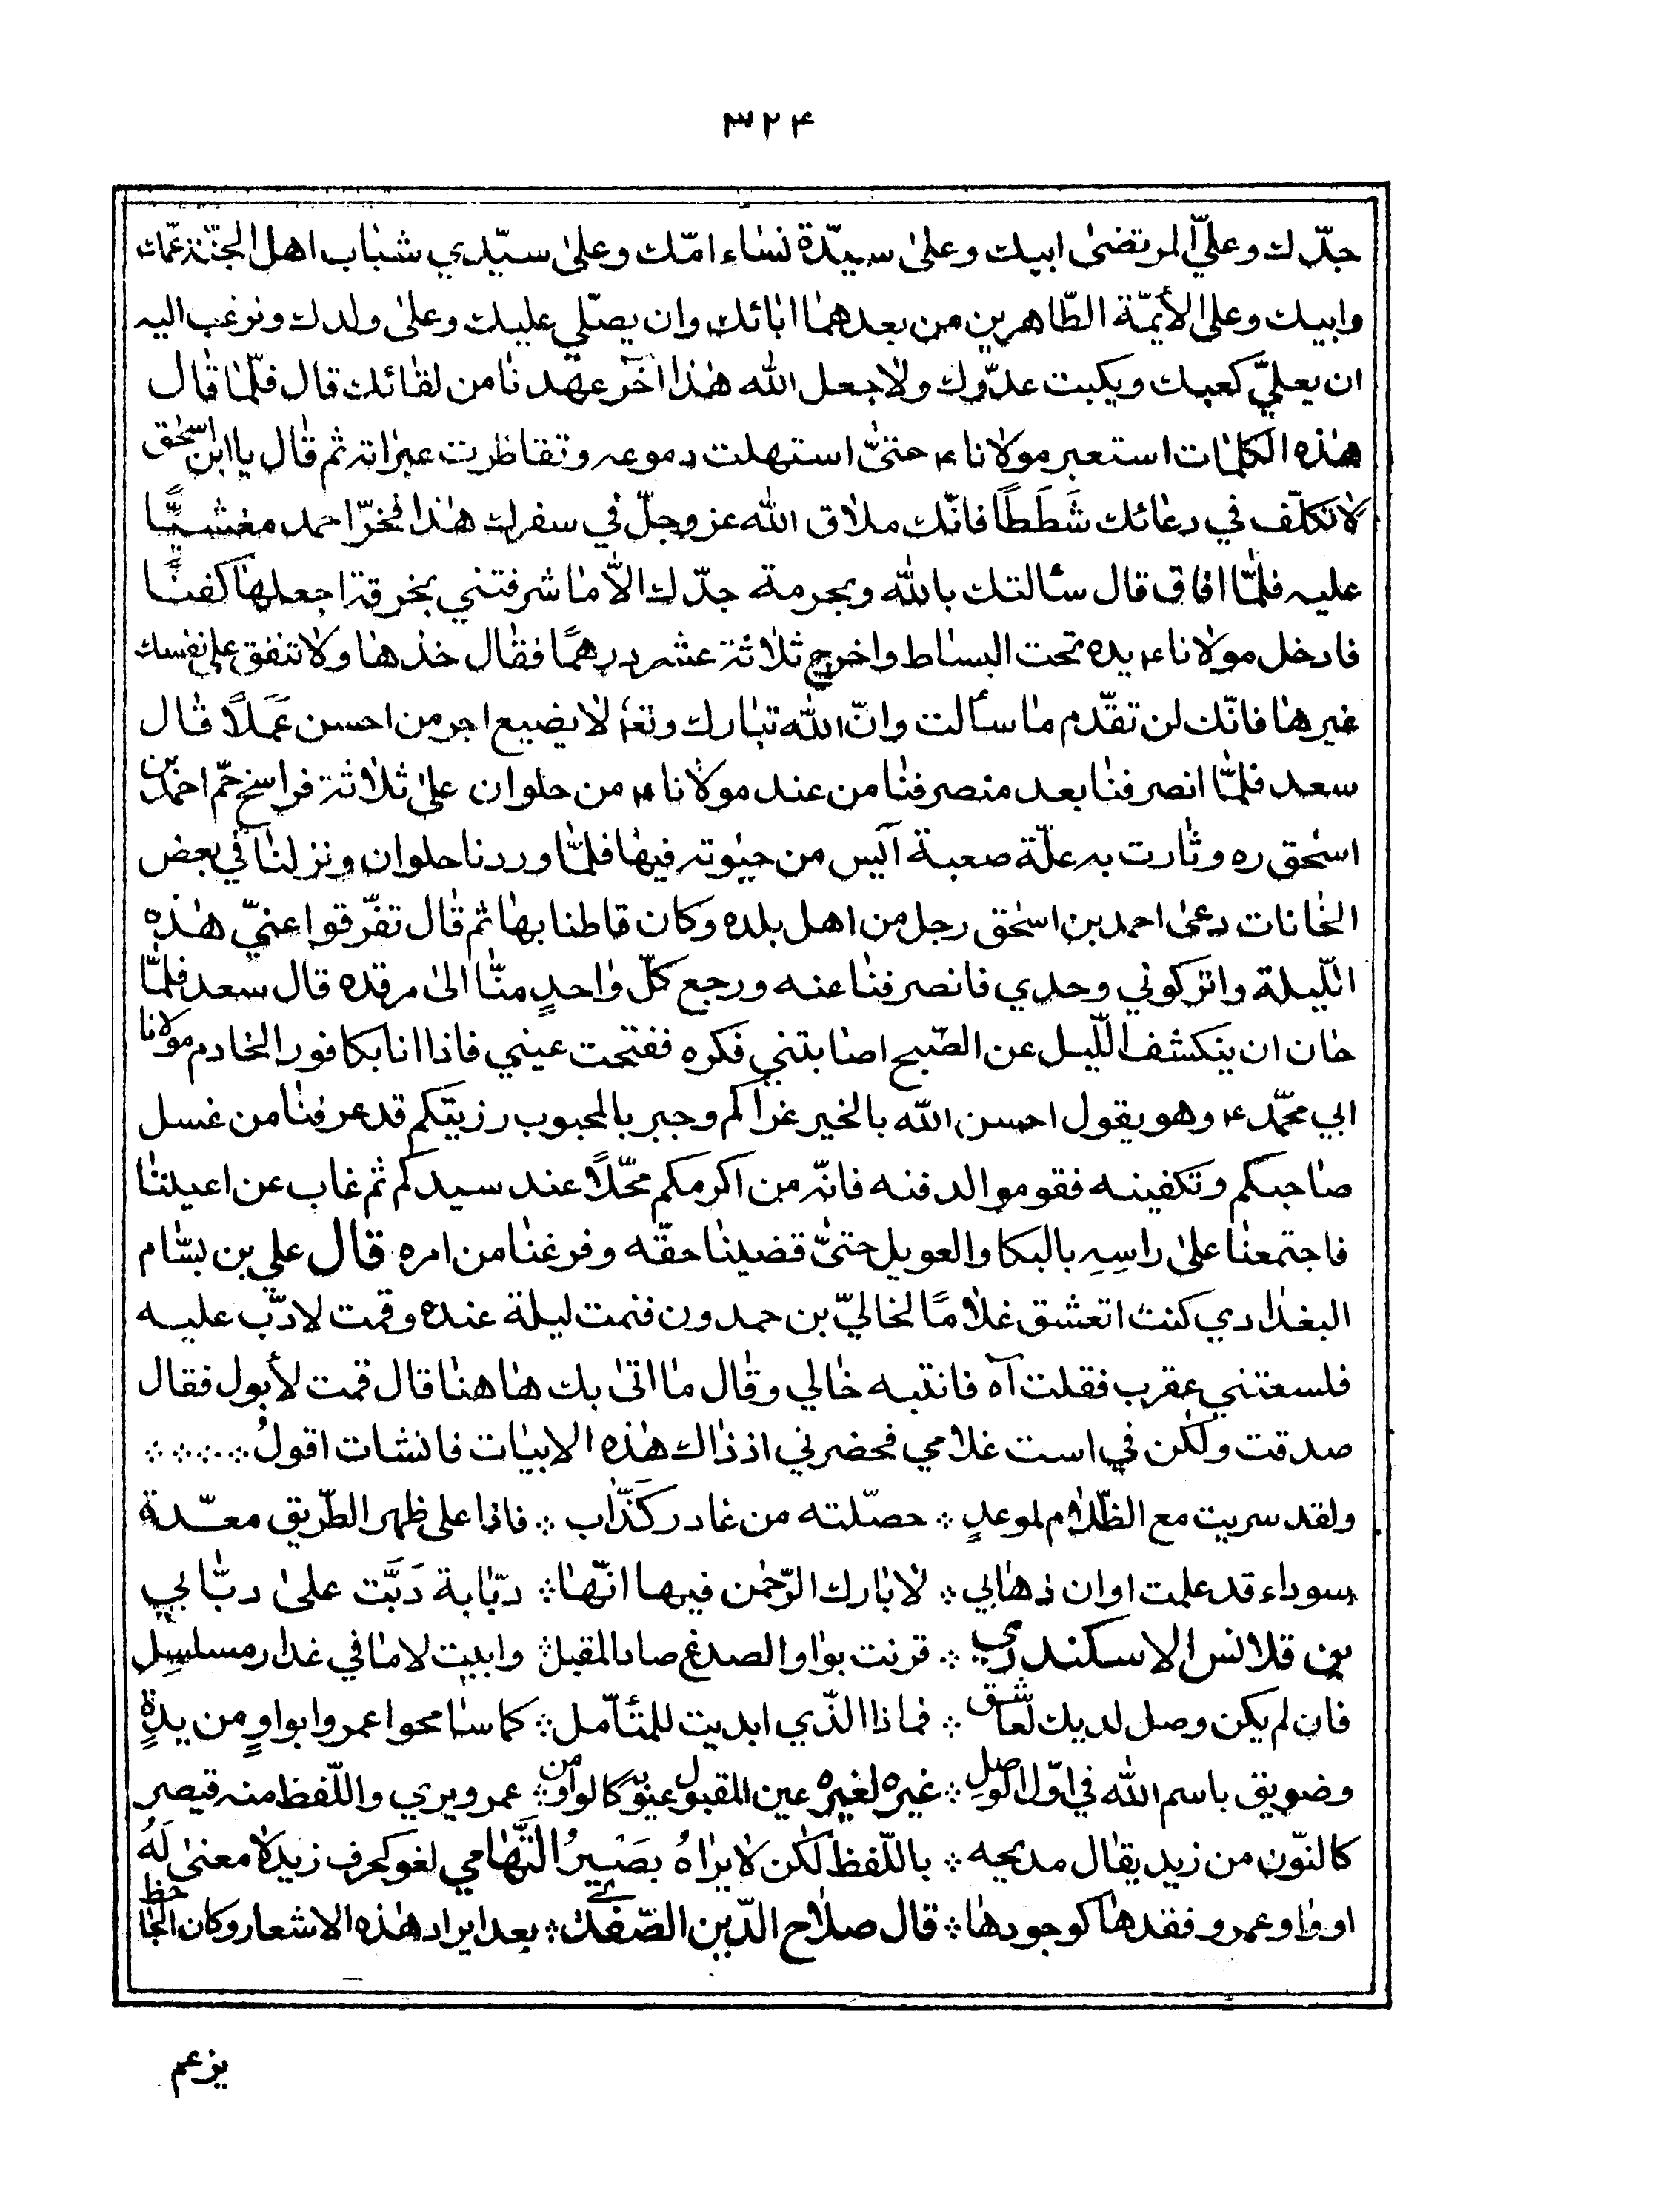 ٣٢۴
جدّك وعليّ المرتضىٰ ابيك وعلىٰ سيّدة نسٰاء امّك وعلىٰ سيّدي شبٰاب اهل الجنّة عمّك
وابيك وعلىٰ الأيمّة الطّاهرين من بعدهمٰا ابٰائك وان يصلّي عليك وعلىٰ ولدك ونرغب اليه
ان يعليّ كعبك ويكبت عدّوك ولٰاجعل الله هٰذا اخر عهدنٰا من لقٰائك قال فلّمٰا قٰال
هٰذه الكلمٰات استعبر مولٰانا ۴ حتىّٰ استهلت دموعه وتقاطرت عبرٰاته ثم قٰال يا ابن اسحٰق
لٰاتكلّف في دعٰائك شَطَطًا فانّك ملاق الله عز وجلّ في سفرك هٰذا فخرّ احمد مغشيًّا
عليه فلمّٰا افاق قال سئالتك باللّٰه وبحرمة جدّك الاّ مٰا شرفتني بخرقة اجعلهٰا كفنًا
فادخل مولٰانا ۴ يده تحت البسٰاط واخرج ثلٰاثة عشر درهمًا فقٰال خذهٰا ولٰاتنفق على نفسك
غيرهٰا فانّك لن تقدّم مٰا سألت وانّ اللّٰه تبٰارك وتعٰ لٰا يضيع اجر من احسن عَمَلًا قٰال
سعد فلمّٰا انصرفنٰا بعد منصرفنٰا من عند مولٰانا ۴ من حلوان علىٰ ثلٰاثة فراسخ حمّ احمد بن
اسحٰق ره وثٰارت به علّة صعبة آيس من حيٰوته فيهٰا فلمّٰا وردنا حلوان ونزلنٰا في بعض
الخٰانات دعىٰ احمد بن اسحٰق رجل من اهل بلده وكان قاطنا بهٰا ثم قٰال تفرّقوا عنيّ هٰذه
اللّيلة واتركوني وحدي فانصرفنٰا عنه ورجع كلّ وٰاحدٍ منّٰا الىٰ مرقده قال سعد فلمّٰا
حٰان ان ينكشف اللّيل عن الصّبح اصٰابتني فكره ففتحت عيني فاذا انا بكافور الخادم مولٰانا
ابي محمّد ۴ وهو يقول احسن الله بالخير عزاكم وجبر بالمحبوب رزيتكم قد عرفنٰا من غسل
صٰاحبكم وتكفينه فقوموا لدفنه فانّه من اكرمكم محّلًا عند سيدكم ثم غاب عن اعيننٰا
فاجتمعنٰا علىٰ راسِهِ بالبكا والعويل حتىّٰ قضينٰا حقّه وفرغنٰا من امره قال علي بن بسّٰام
البغدٰادي كنت اتعشق غلٰامًا لخاليّ بن حمدون فنمت ليلة عنده وقمت لادّب عليه
فلسعتني عقرب فقلت آه فانتبه خٰالي وقٰال مٰا اتىٰ بك هٰاهنٰا قال قمت لأبول فقال
صدقت ولٰكن في است غلامي فحضرني اذ ذٰاك هٰذه الابيٰات فانشات اقولُ
ولقد سريت مع الظّلٰام لموعدٍ ∴ حصّلته من غادر كَذّٰاب ∴ فاذا على ظهر الطّريق معدّة
سوداء قد علمت اوان ذهٰابي ∴ لٰا بٰارك الرّحمٰن فيهٰا انّهٰا ∴ دبّٰابة دَبَّت علىٰ دبّٰابي
بن قلانس الاسكندري ∴ قرنت بوٰاو الصدغ صاد المقبل ∴ وابديت لامٰا في عذار مسلسلِ
فان لم يكن وصل لديك لعاشق ∴ فماذا الّذي ابديت للمتأمّل ∴ كما سٰامحوا عمروا بواوٍ من يدةٍ
وضويق باسم الله في اوّل الوصلِ ∴ غيره لغيره عين المقبول عنوّه كالواو من ∴ عمرو يري واللّفظ منه قيصر
كالنّون من زيد يقٰال مديحه ∴ باللّفظ لٰكن لٰا يرٰاهُ بصَيرُ التَّهٰامي لغو كحرف زيد لٰا معنىٰ لَهُ
او وٰاو عمرو فقدهٰا كوجودهٰا ∴ قال صلٰاح الدّين الصّفدي ∴ بعد ايراد هٰذه الاشعار وكان الجٰاحظ
يزعم